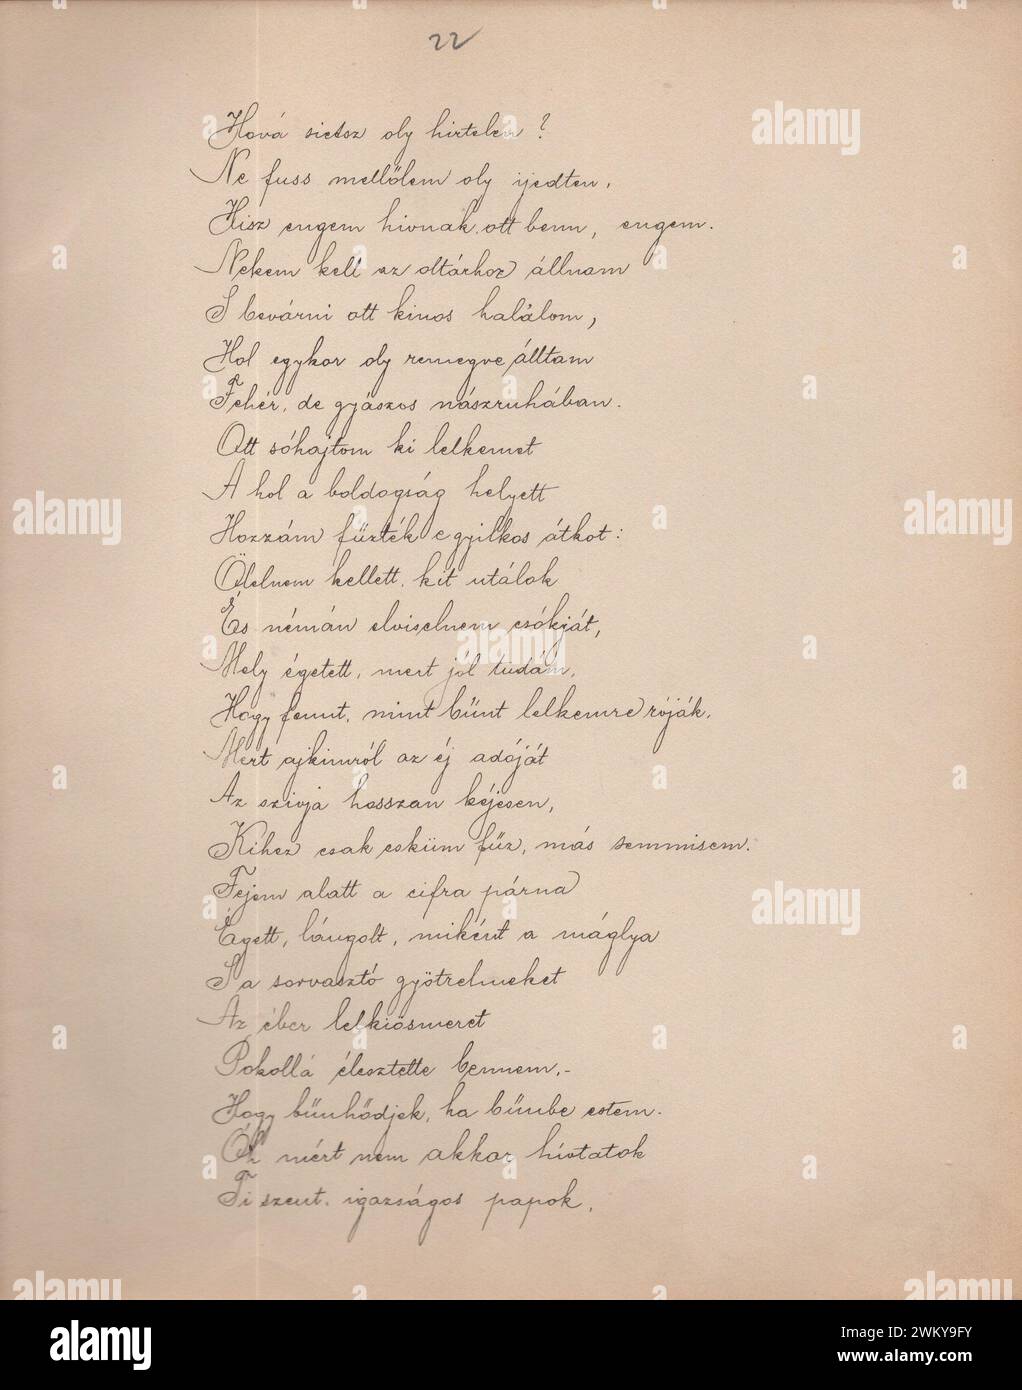 22
Hová sietsz oly hirtelen ?
Ne fuss mellőlem oly ijedten,
Hisz engem hivnak ott benn, engem.
Nekem kell az oltárhoz állnom
S bevárni ott kinos halálom,
Hol egykor oly remegve álltam
Fehér, de gyászos nászruhában.
Ott sóhajtom ki lelkemet
A hol a boldogság helyett
Hozzám fűzték e gyilkos átkot:
Ölelnem kellett, kit utálok
És némán elviselnem csókját,
Mely égetett, mert jol tudám,
Hogy fennt, mint bűnt lelkemre róják.
Mert ajkimról az éj adóját
Az szivja hosszan kéjesen,
Kihez csak esküm fűz, más semmisem.
Fejem alatt a cifra párna
Égett, lángolt, miként a máglya
S a sorvasztó gyötrelmeket
Az éber lelkiösmeret
Pokollá élesztette bennem,-
Hogy bűnhődjek, ha bűnbe estem.
Óh mért nem akkor hívtatok
Ti szent, igazságos papok,
alamy
Image ID: 2WKY9FY
www.alamy.com